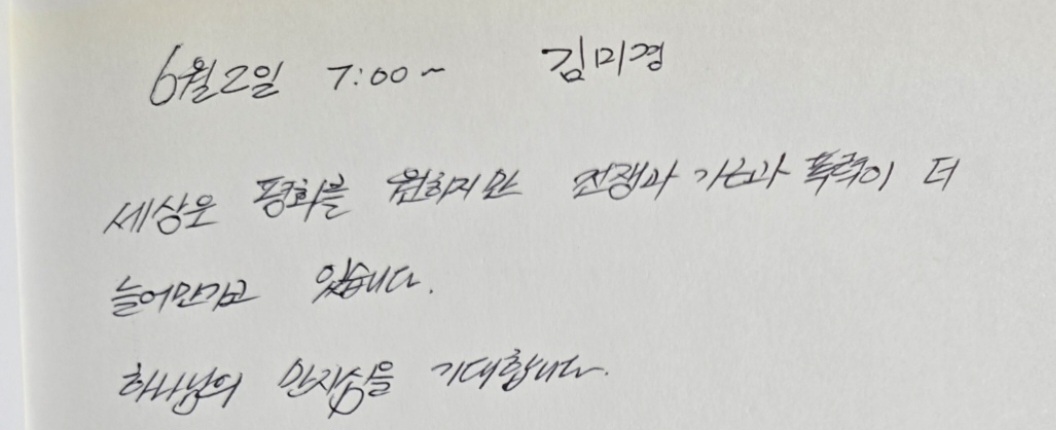 6월2일 7:00~ 김미경
세상은 평화를 원하지만 전쟁과 기근과 폭력이 더
늘어만가고 있습니다.
하나님의 만지심을 기대합니다.